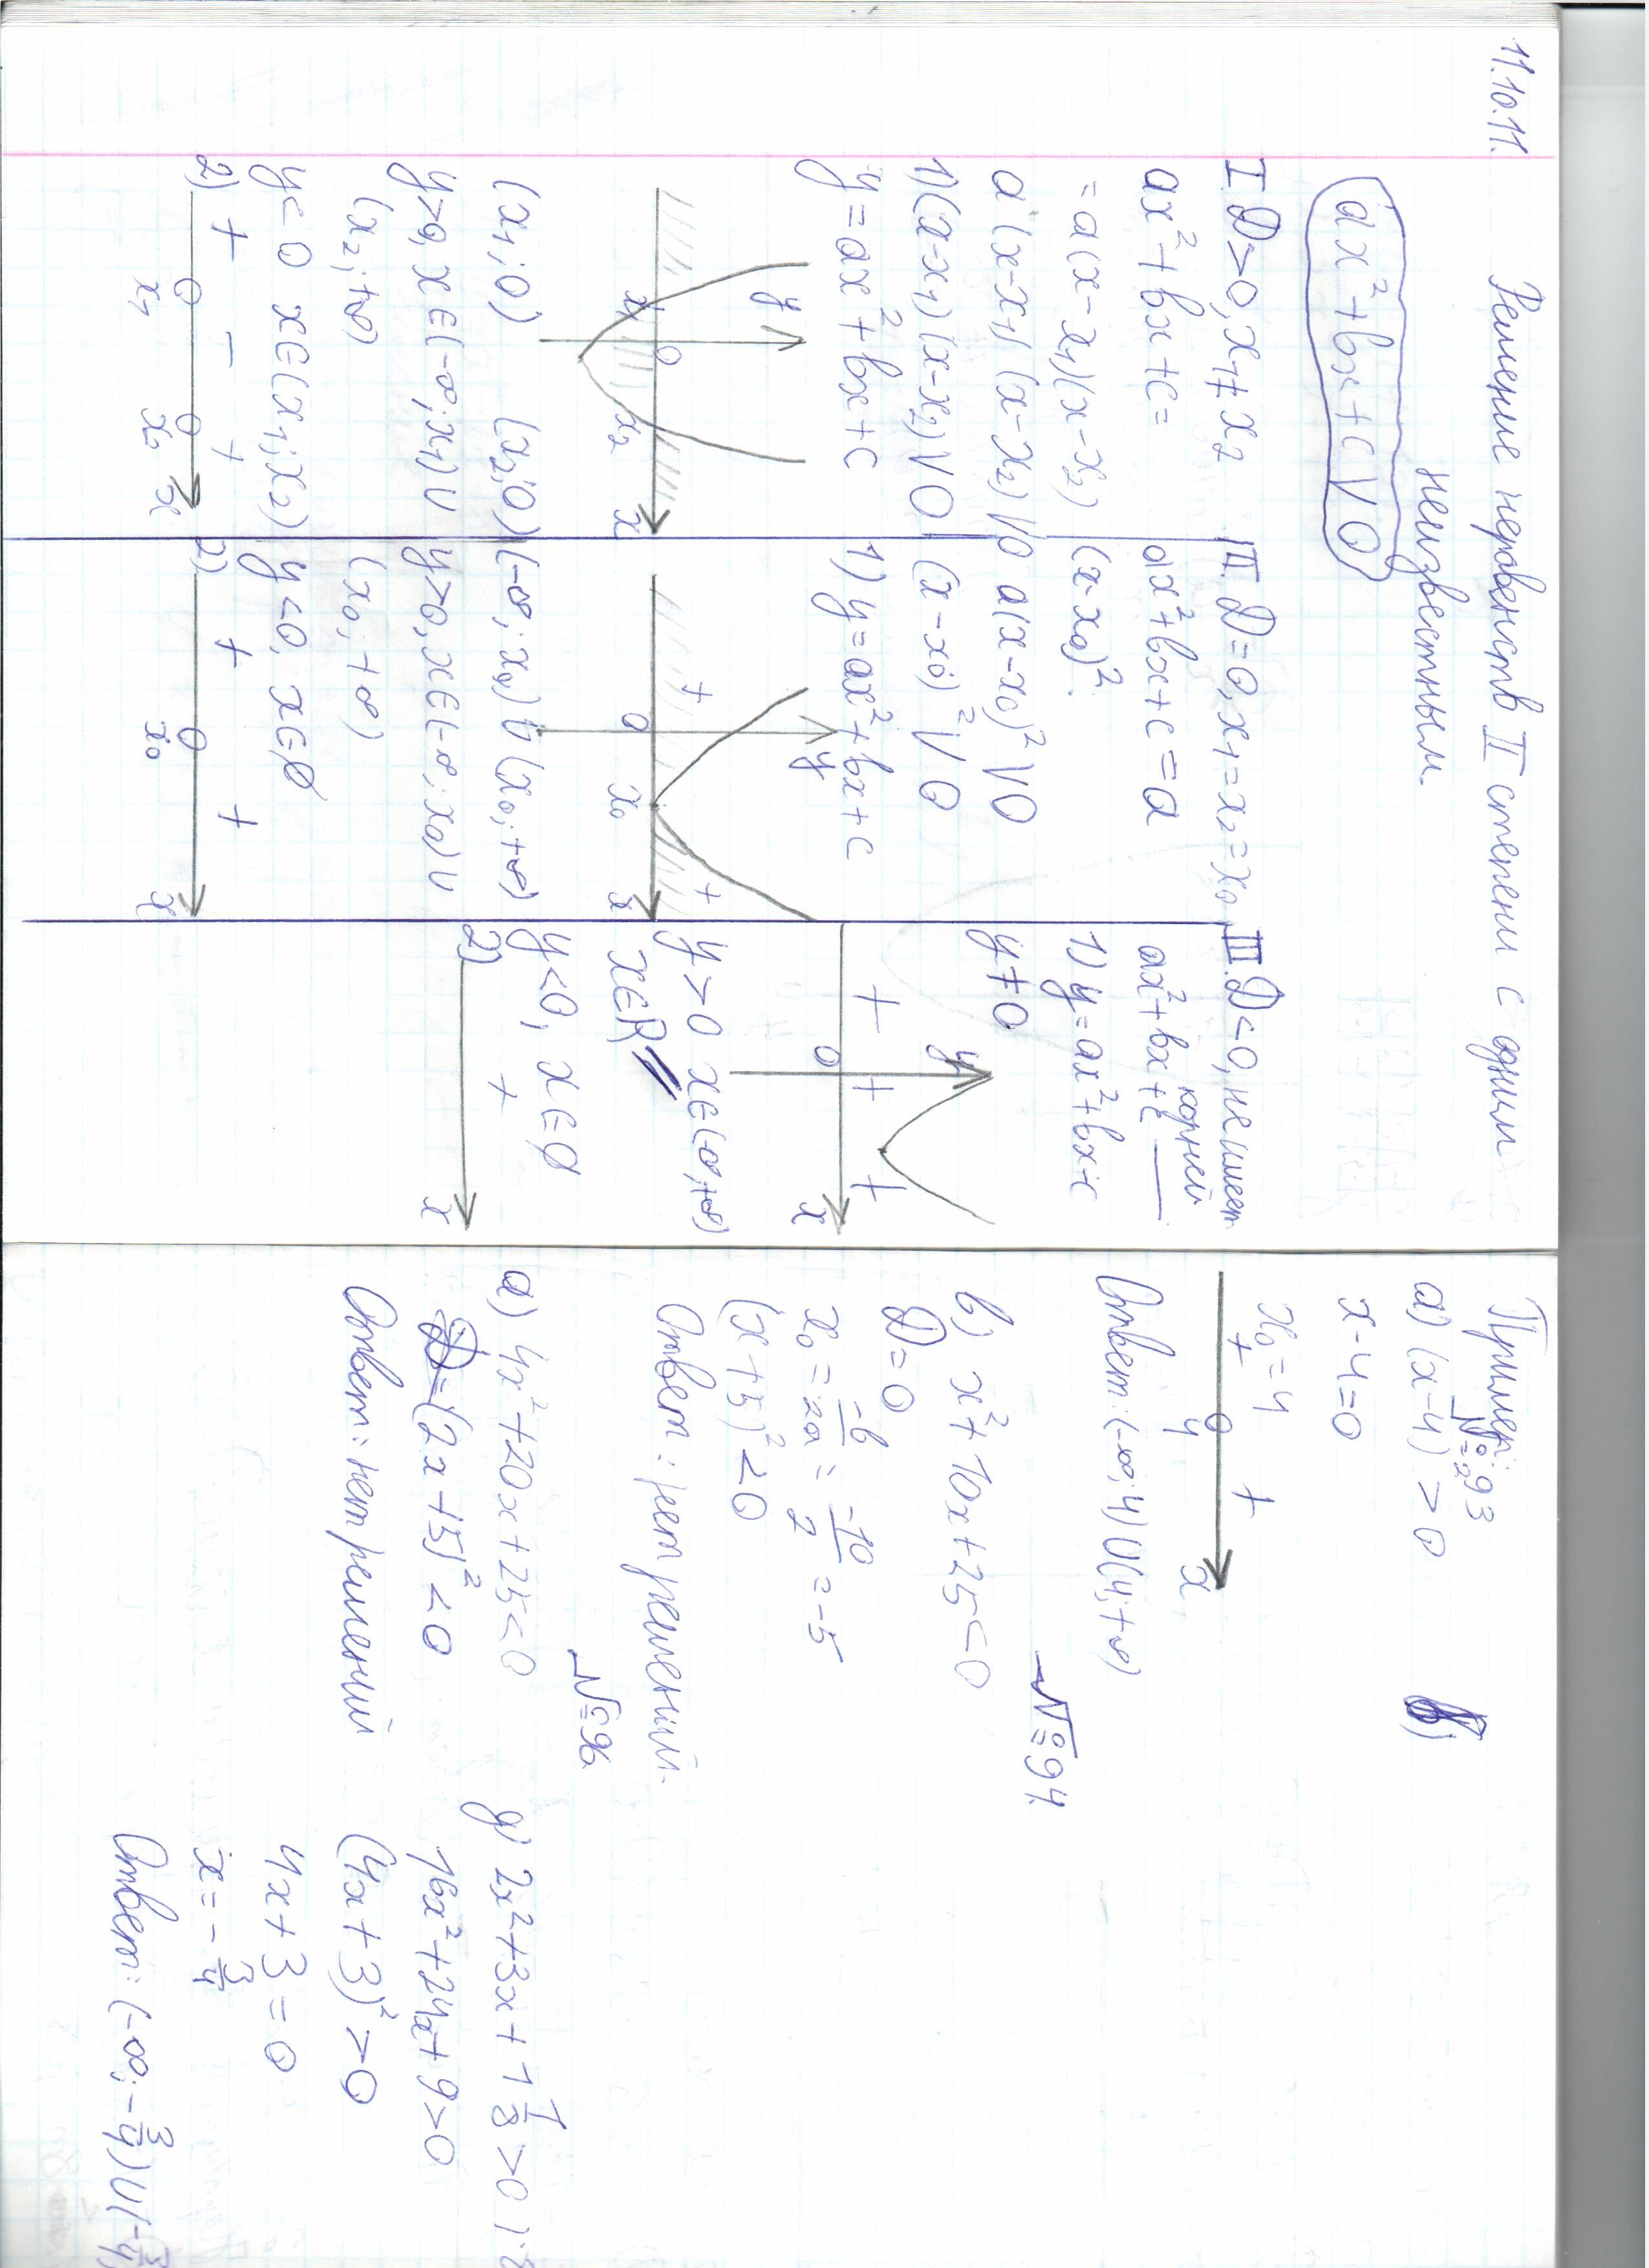 11.10.11.
Решение неравенств II степени с одним
неизвестным.
ax²+bx+c∨0
I. D>0, x₁≠x₂
ax²+bx+c=
=a(x-x₁)(x-x₂)
a(x-x₁)(x-x₂)∨0
1)(a-x₁)(x-x₂)∨0
y=ax²+bx+c
y
x₁ 0 x₂ x
(x₁;0) (x₂;0)
y>0, x∈(-∞;x₁)∪
(x₂;+∞)
y<0 x∈(x₁;x₂)
2) + - +
x₁ x₂ x
II. D=0, x₁=x₂=x₀
ax²+bx+c=a
(x-x₀)².
a(x-x₀)²∨0
(x-x₀)²∨0
1) y=ax²+bx+c
y
+ +
0 x₀ x
(-∞;x₀)∪(x₀;+∞)
y>0, x∈(-∞;x₀)∪
(x₀;+∞)
y<0, x∈∅
2) + +
x₀ x
III. D<0, не имеет
корней
ax²+bx+c
1) y=ax²+bx+c
y≠0
y
+ + +
0 x
y>0 x∈(-∞;+∞)
x∈R
y<0, x∈∅
2) +
x
Пример:
№93
a) (x-4)²>0
x-4=0
x₀=4
+ +
4 x
Ответ: (-∞;4)∪(4;+∞)
в)
№94
в) x²+10x+25<0
D=0
x₀=-b/2a=-10/2=-5
(x+5)²<0
Ответ: нет решений.
№96
а) 4x²+20x+25<0
(2x+5)²<0
Ответ: нет решений
g) 2x²+3x+1 1/8>0 |·8
16x²+24x+9>0
(4x+3)²>0
4x+3=0
x=-3/4
Ответ: (-∞;-3/4)∪(-3/4;